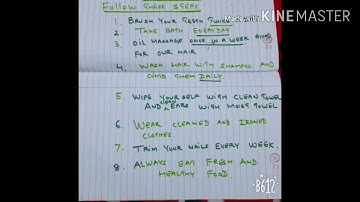 Follow These Steps
Made with KINEMASTER
1. BRUSH YOUR TEETH TWICE
2. TAKE BATH EVERYDAY
3. OIL MASSAGE ONCE IN A WEEK GIVEN
FOR OUR HAIR
4. WASH HAIR WITH SHAMPOO AND
COMB THEM DAILY
5. WIPE YOUR SELF WITH CLEAN TOWEL
AND clean EARS WITH MOIST TOWEL
6. WEAR CLEANED AND IRONED
CLOTHES.
7. TRIM YOUR NAILS EVERY WEEK.
8. ALWAYS EAT FRESH AND
HEALTHY FOOD.
B612